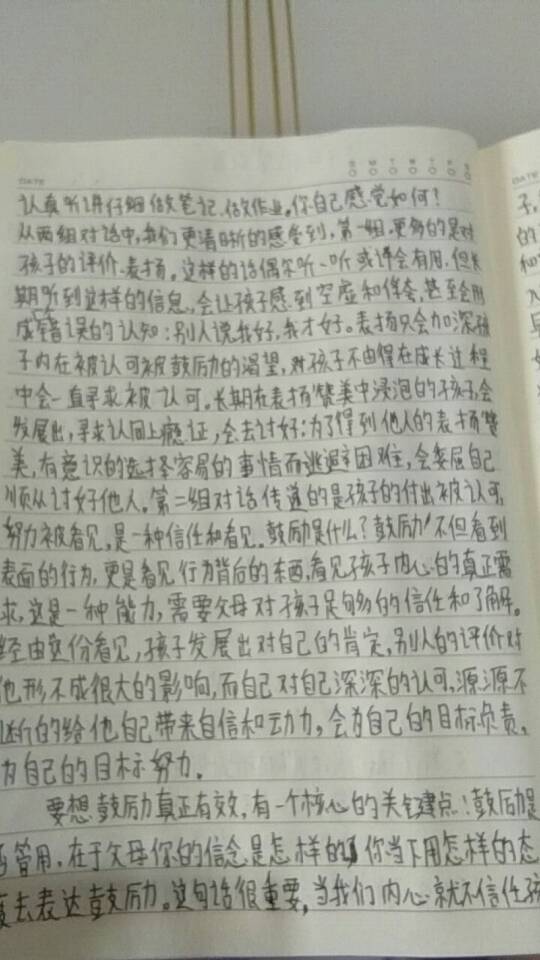 DATE
S M T W T F S
DATE
认真听讲仔细做笔记、做作业。你自己感觉如何？
从两组对话中，我们更清晰的感觉到，第一组，更多的是对
孩子的评价、表扬。这样的话偶尔听一听或许会有用，但长
期听到这样的信息，会让孩子感到空虚和 甚至会形
成错误的认知：别人说我好，我才好。表扬只会加深孩
子内在被认可被鼓励的渴望，对孩子不由得在成长过程
中会一直寻求被认可。长期在表扬赞美中浸泡的孩子，会
发展出，寻求认同上瘾证，会去讨好；为了得到他人的表扬赞
美，有意识的选择容易的事情而逃避困难，会委屈自己
顺从讨好他人。第二组对话传递的是孩子的付出被认可，
努力被看见，是一种信任和看见。鼓励是什么？鼓励不但看到
表面的行为，更是看见行为背后的东西，看见孩子内心的真正需
求，这是一种能力，需要父母对孩子足够的信任和了解。
经由这份看见，孩子发展出对自己的肯定，别人的评价对
他形不成很大的影响，而自己对自己深深的认可，源源不
断的给他自己带来自信和动力，会为自己的目标负责，
为自己的目标努力。
要想鼓励真正有效，有一个核心的关键点！鼓励是
否管用，在于父母你的信念是怎样的，你当下用怎样的态
度去表达鼓励。这句话很重要，当我们内心就不信任孩
子，
的
和